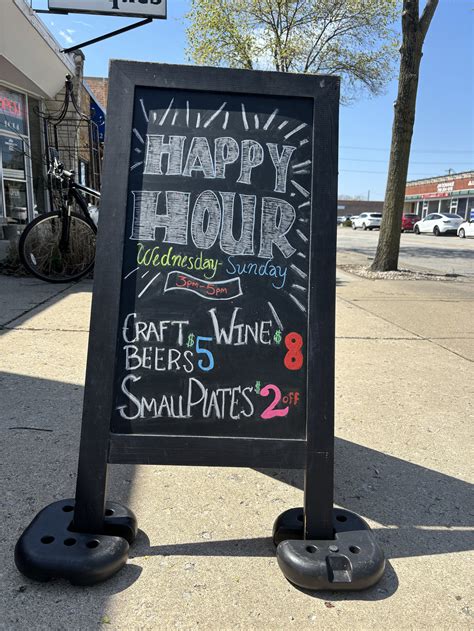 HAPPY
HOUR
Wednesday-Sunday
3pm-5pm
CRAFT
BEERS $5
WINE $8
SMALL PLATES $2 off